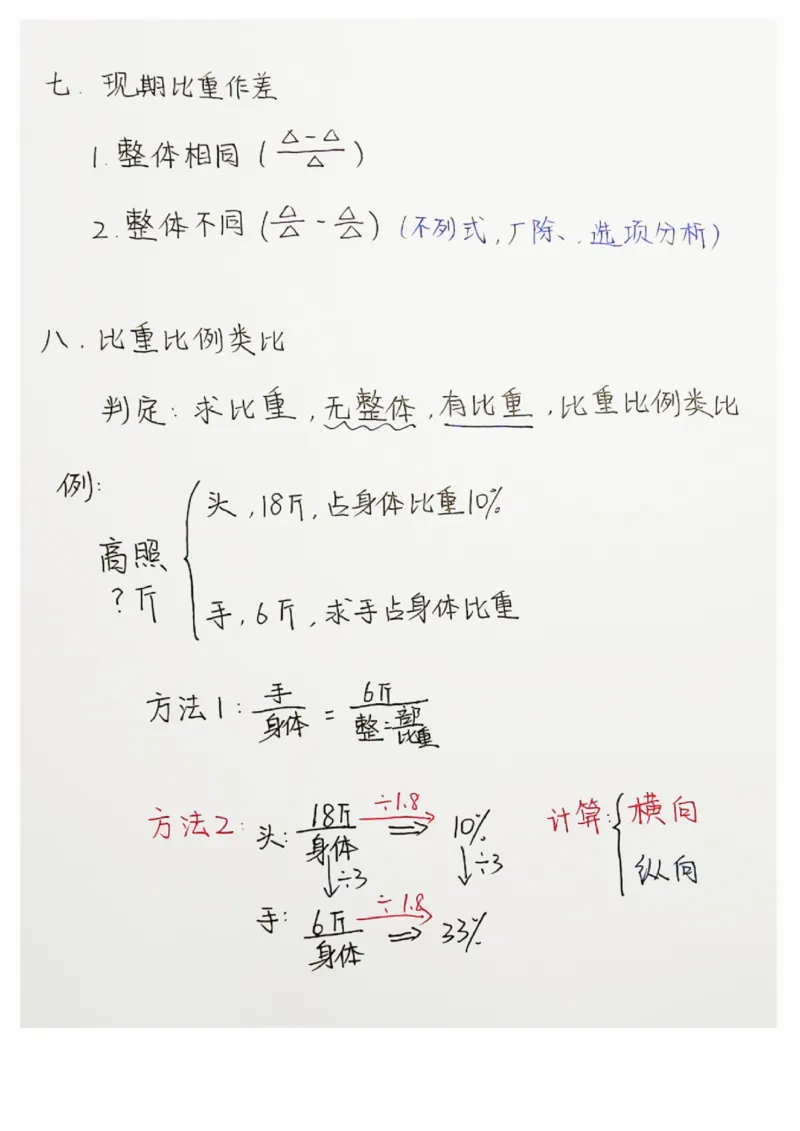 七. 现期比重作差
1. 整体相同 (△-△/△)
2. 整体不同 (△/△ - △/△) (不列式,厂除、,选项分析)
八. 比重比例类比
判定: 求比重,无整体,有比重,比重比例类比
例:
头,18斤,占身体比重10%
高照
?斤
手,6斤,求手占身体比重
方法1: 手/身体 = 6斤/整=部/比重
方法2: 头: 18斤/身体 ÷1.8 ⇒ 10% 计算: 横向
÷3 ÷3 纵向
手: 6斤/身体 ÷1.8 ⇒ 33%